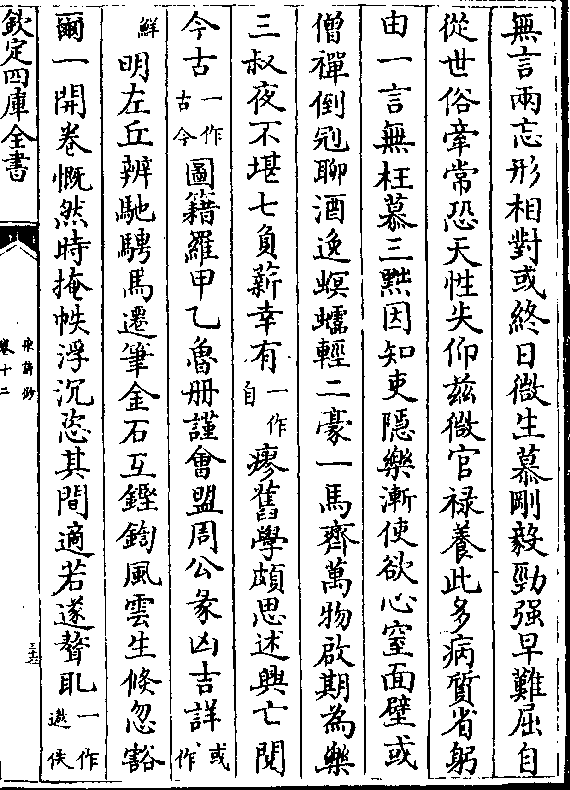 無言兩忘形相對或終日微生慕剛毅勁强早難屈自
從世俗牽常恐天性失仰兹微官禄養此多病質省躬
由一言無枉慕三黜因知吏隱樂漸使欲心窒面壁或
僧禪倒冠聊酒逸螟蠕輕二豪一馬齊萬物啟期為樂
三叔夜不堪七負薪幸有一作自瘳舊學頗思述興亡閱
今古一作古今圖籍羅甲乙魯册謹會盟周公彖凶吉詳或作
鮮明左丘辨馳騁馬遷筆金石互鏗鍧風雲生倏忽豁
爾一開卷慨然時掩帙浮沉恣其間適若遂聱耴一作遨佚
欽定四庫全書
宋詩鈔
卷十二